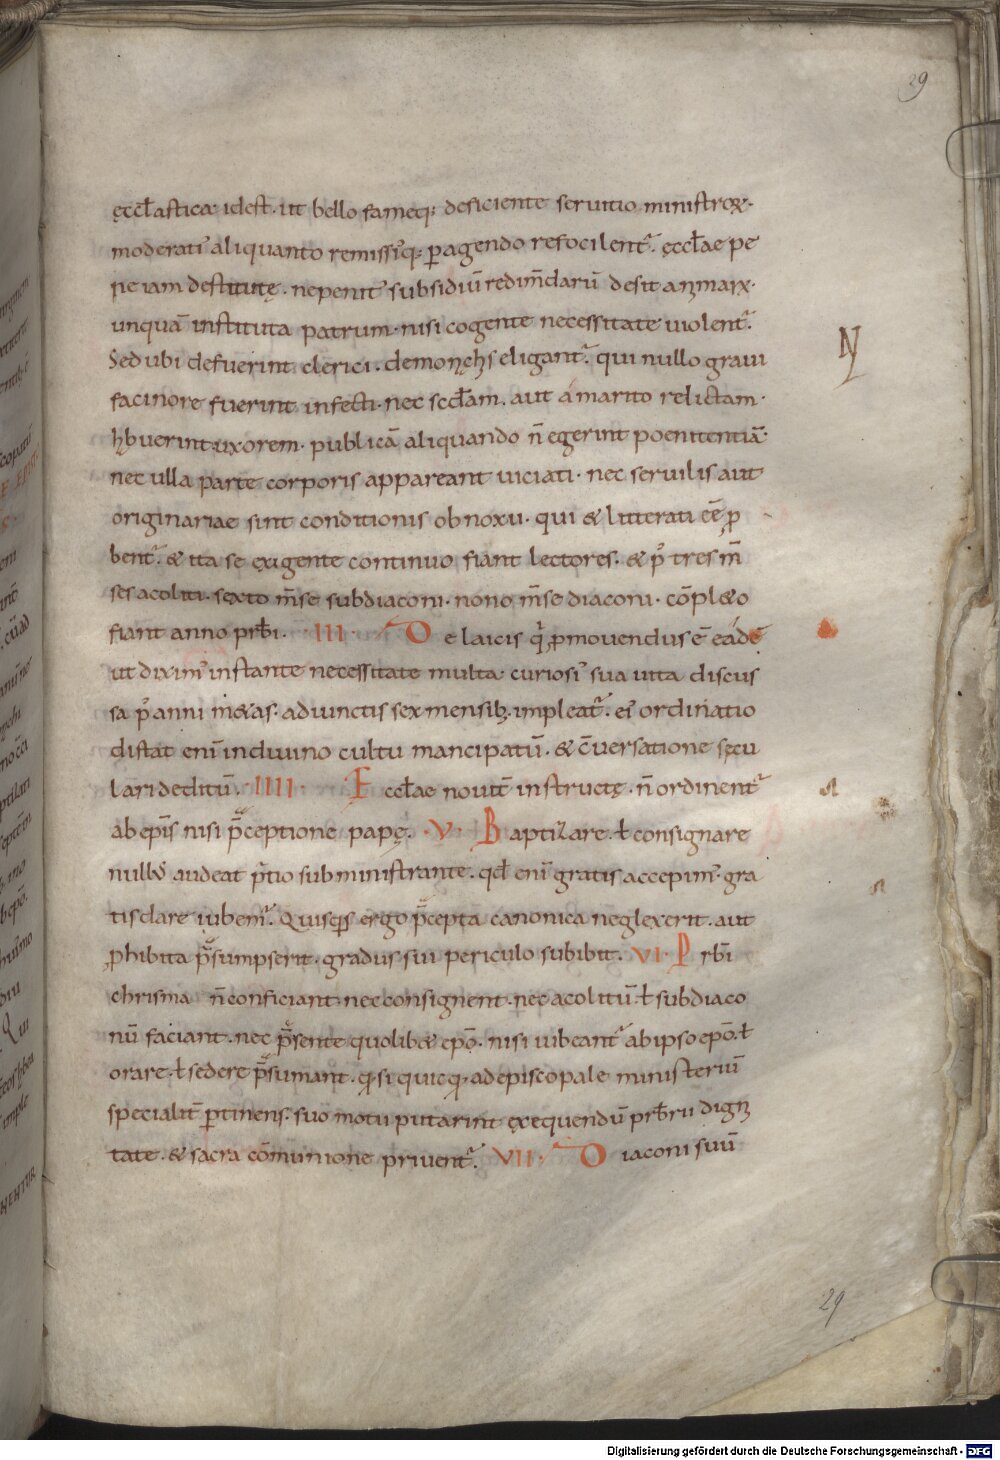 29
ęccƚastica idest. ut bello fameq; deficiente seruitio ministroꝝ.
moderati᾽ aliquanto remissi᾽q; ꝑagendo refocilent᾽. ęccƚae pe
ne iam destitutę. ne penit᾽ subsidiū redim̄darū desit anmarꝝ.
unquā instituta patrum. nisi cogente necessitate uiolent᾽.
Sed ubi defuerint clerici. de monęhis eligant᾽. qui nullo graui
facinore fuerint infecti. nec sccƚam. aut á marito relictam.
hbuerint uxorem. publicā aliquando n̄ egerint poenitentiā.
nec ulla parte corporis appareant uiciati. nec seruilis aut
originariae sint conditionis obnoxii. qui & litterati eē ꝓ
bent᾽. & ita se exigente continuo fiant lectores. & p᾽ tres m̄
ses acoliti. sexto m̄se subdiaconi. nono m̄se diaconi. cōpl&o
fiant anno prƀi. III. De laicis q᾽ ꝓmouendus ē eádē
ut dixim᾽ instante necessitate multa. curiosi᾽ sua uita discus
sa p᾽ anni m&as. adiunctis sex mensib; impleat᾽. ei᾽ ordinatio
distat eni᾽ in diuino cultu mancipatū. & c̄uersatione sęcu
lari deditū. IIII. Eccƚae nouit᾽ instructę. n̄ ordinent᾽
ab epis̄ nisi p̄ceptione papę. V. Baptizare. ƚ consignare
nullo᾽ audeat p̄tio subministrante. qđ eni᾽ gratis accepim᾽. gra
tis dare iubem᾽. Quisq̄s ergo p̄cepta canonica neglexerit. aut
ꝓhibita p̄sumpserit. gradus sui periculo subibit. VI. Prƀi
chrisma n̄ conficiant. nec consignent. nec acolitū. ƚ subdiaco
nū faciant. nec p̄sente quolib& epō. nisi iubeant᾽ ab ipso epō. ƚ
orare. ƚ sedere p̄sumant. q;. si quicq;. ad episcopale ministeriū
specialit᾽ ꝑtinens. suo motu putarint exequendū prƀrii digni
tate. & sacra cōmunione priuent᾽. VII. Diaconi suū
29
Digitalisierung gefördert durch die Deutsche Forschungsgemeinschaft - DFG